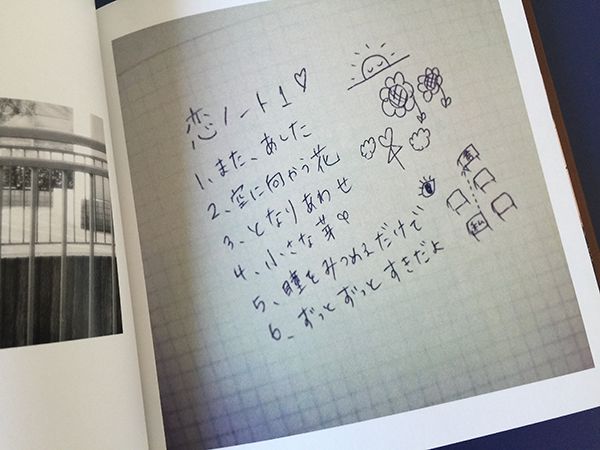 恋ノート1♡
1、また、あした
2、空に向かう花
3、となりあわせ
4、小さな芽♡
5、瞳をみつめるだけで
6、ずっとずっとすきだよ
私